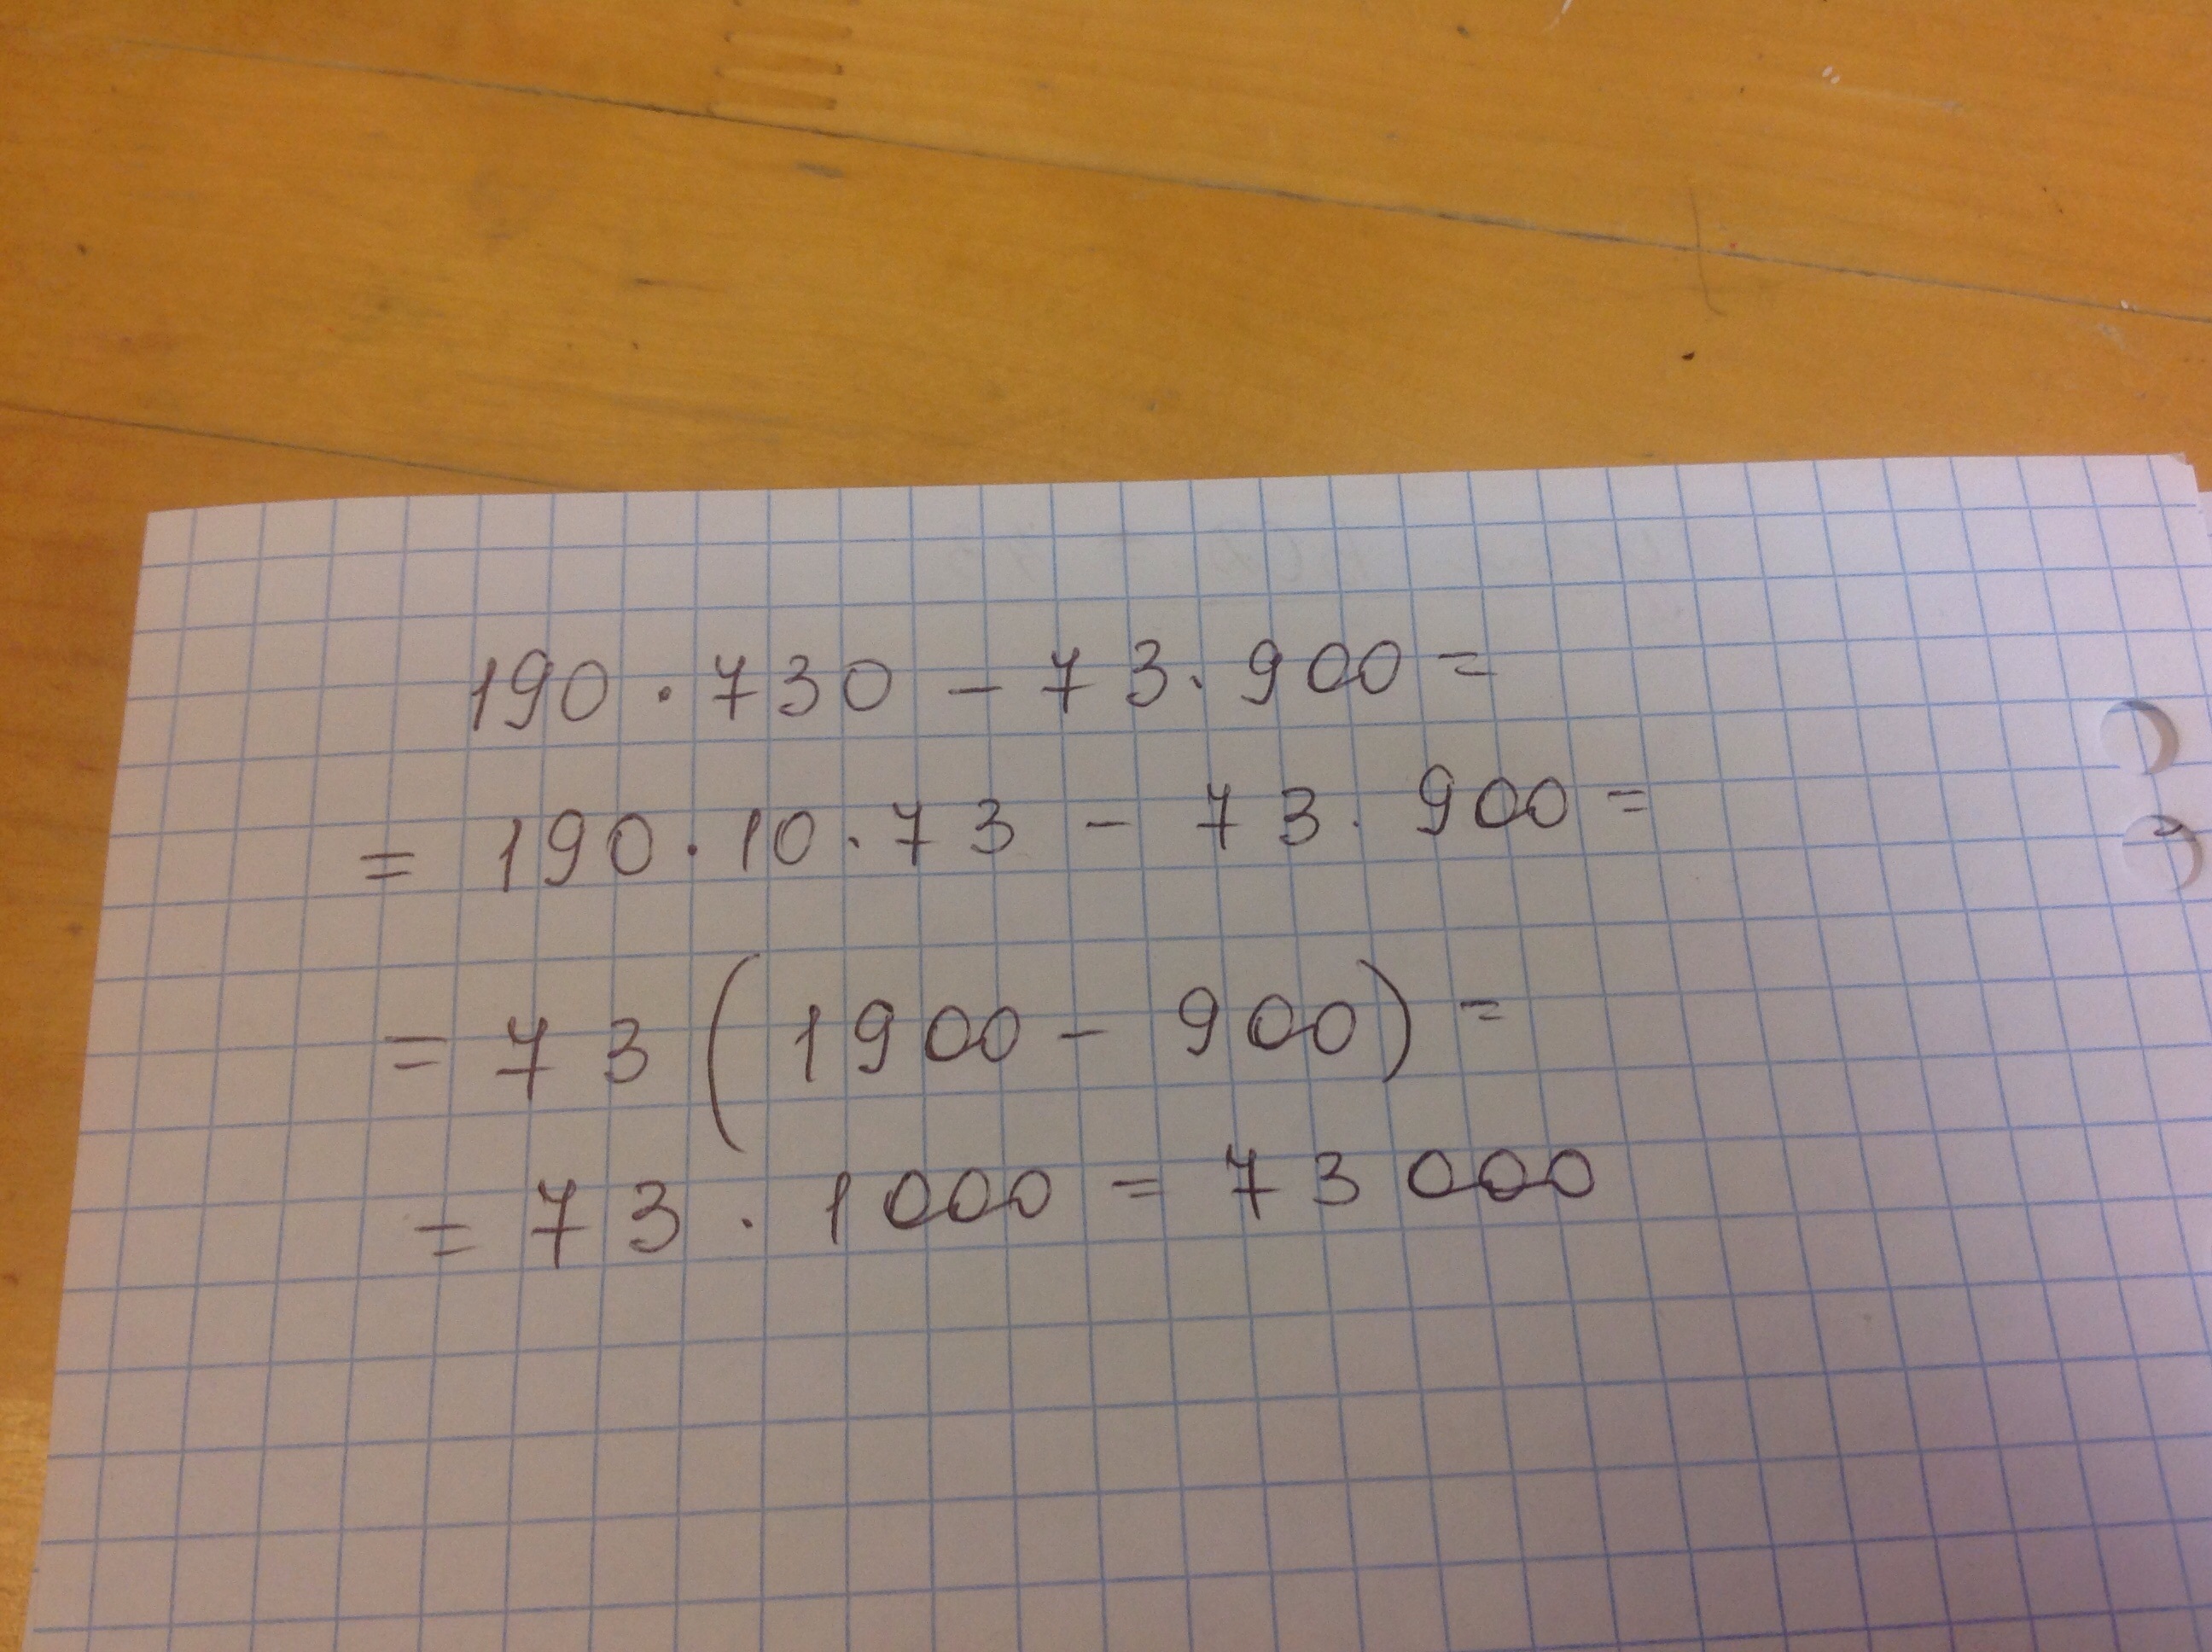 190 · 730 - 73 · 900 =
= 190 · 10 · 73 - 73 · 900 =
= 73 (1900 - 900) =
= 73 · 1000 = 73 000